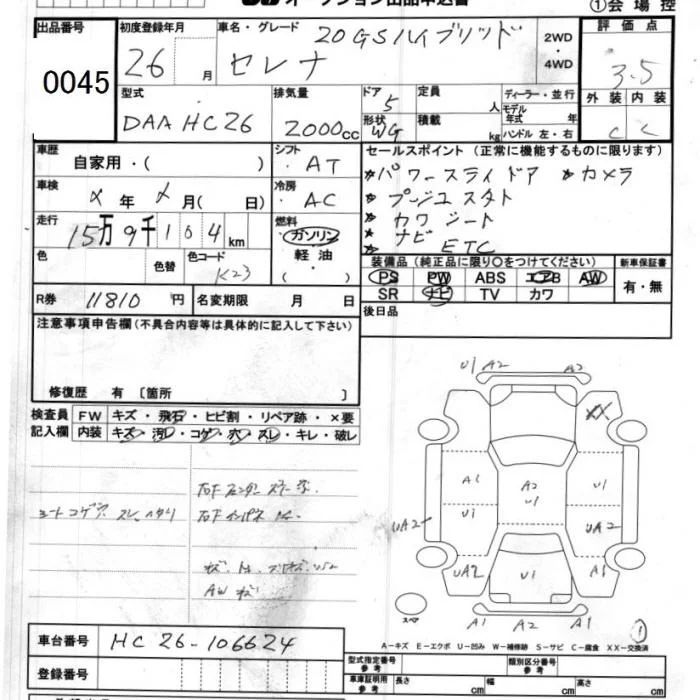 オークション出品申込書
①会場控
出品番号 初度登録年月 車名・グレード 20GSハイブリッド 2WD ・ 4WD 評価点
0045 26 月 セレナ 3.5
型式 排気量 ドア 定員 人 ディーラー・並行 外装 内装
DAA HC26 2000cc 5 モデル年式 年 C C
形状 WG 積載 kg ハンドル 左・右
車歴 自家用・( ) シフト ・AT セールスポイント(正常に機能するものに限ります)
パワースライドドア カメラ
車検 年 月( 日) 冷房 ・AC プッシュスタート
走行 15万9千104km 燃料 ガソリン ・ 軽油 ・ ( ) カワシート
ナビ ETC
色 色替 色コード K23
装備品(純正品に限り○をつけてください) 新車保証書
PS PW ABS エアB AW 有・無
SR ナビ TV カワ
R券 11810円 名変期限 月 日 後日品
注意事項申告欄(不具合内容等は具体的に記入して下さい)
修復歴 有 〔箇所 〕
検査員記入欄 FW キズ・飛石・ヒビ割・リペア跡・×要
内装 キズ・汚レ・コゲ・穴・スレ・キレ・破レ
U1 A2 A2
XX
A1 A2 U1 U1
U1 UA2 UA2
UA2 U1 A1
スペア A1 A2 A1
①
A−キズ E−エクボ U−凹み W−補修跡 S−サビ C−腐食 XX−交換済
車台番号 HC26-106624
登録番号
型式指定番号 参考 類別区分番号 参考
車庫証明用 参考 長さ cm 幅 cm 高さ cm